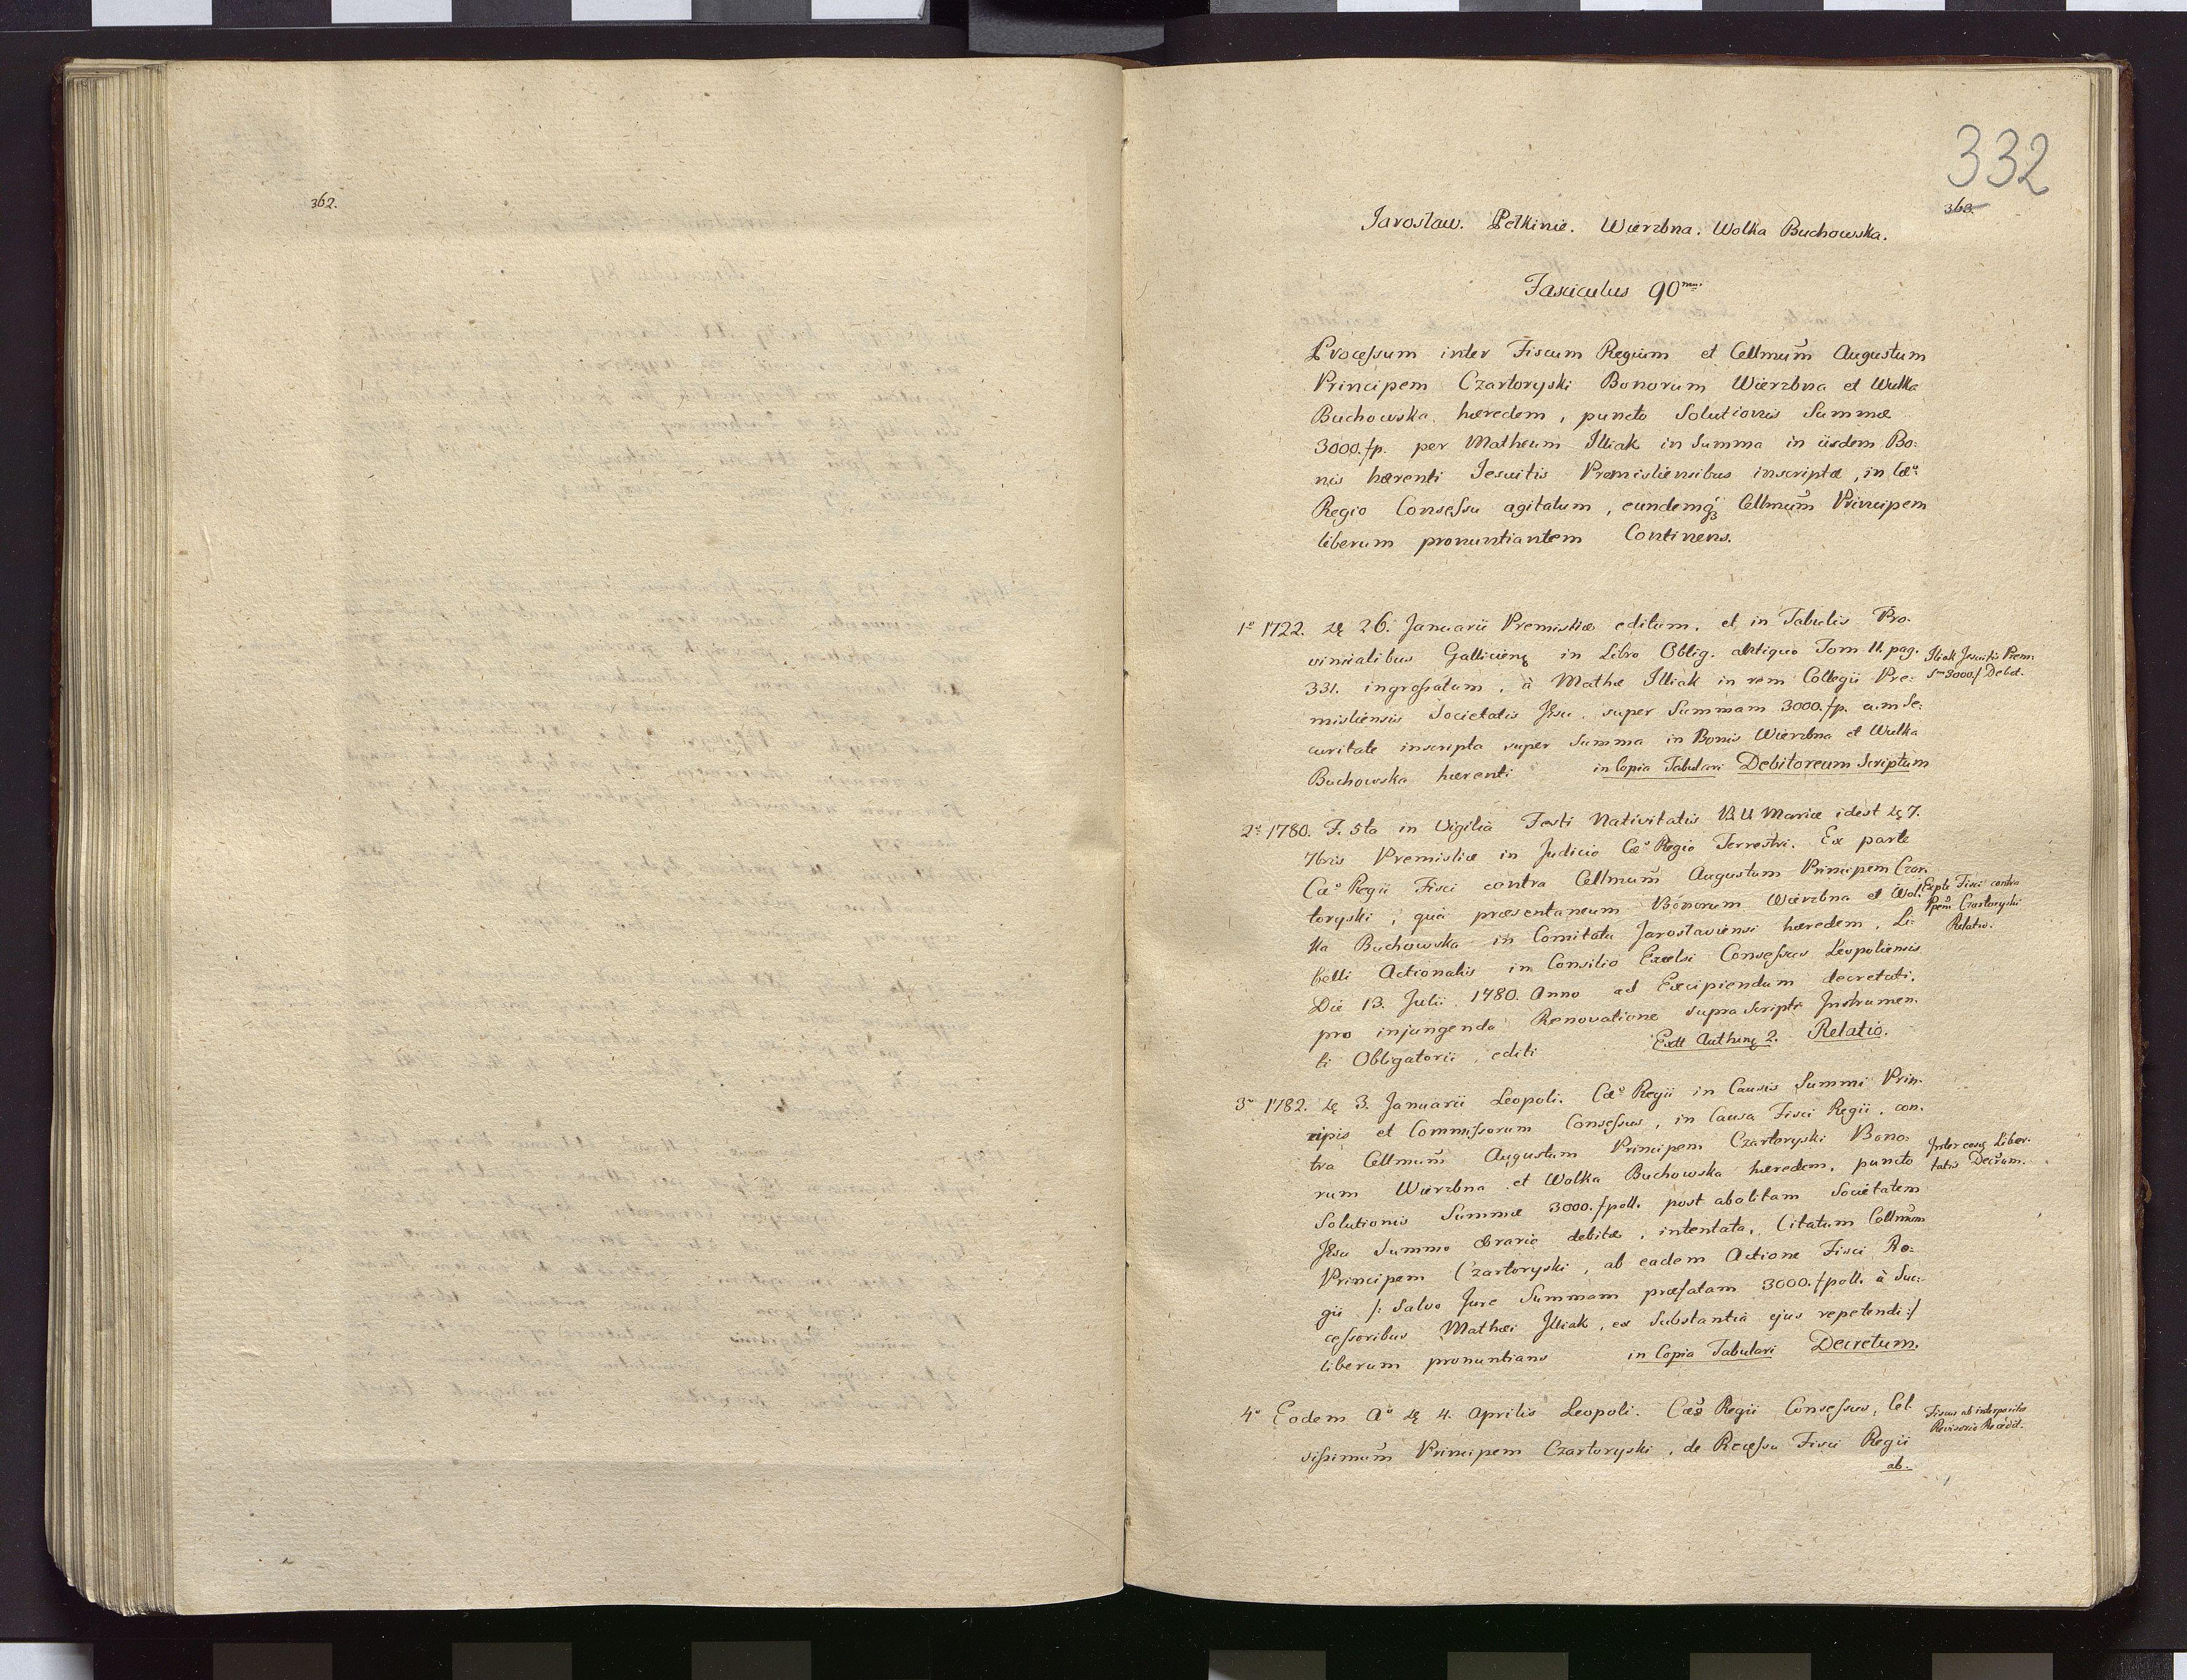 362.
332
363.
Jarosław. Pełkinie. Wierzbna. Wolka Buchowska.
Fasciculus 90mus
Processum inter Fiscum Regium et Cellmum Augustum
Principem Czartoryski Bonorum Wierzbna et Wulka
Buchowska hæredem, puncto Solutionis Summæ
3000. fp. per Matheum Illiak in Summa in iisdem Bo:
nis hærenti Jesuitis Premisliensibus inscriptæ, in Cæo:
Regio Consessu agitatum, eundemq3 Cellmum Principem
liberum pronuntiantem Continens.
1o 1722. 26. Januarii Premisliæ editum, et in Tabulis Pro:
vincialibus Galliciens in Libro Oblig. antiquo Tom 11. pag.
331. ingrossatum, à Mathæ Illiak in rem Collegii Pre:
misliensis Societatis Jesu, super Summam 3000. fp. cum Se:
curitate inscripta super Summa in Bonis Wierzbna et Wulka
Buchowska hærenti in Copia Tabulari Debitoreum Scriptum
Iliak Jesuitis Prem:
Sm 3000. f Debet.
2o 1780. F. 5ta in Vigilia Festi Nativitatis B. V Mariæ idest 7.
7bris Premisliæ in Judicio Cæo Regio Terrestri. Ex parte
Cæo Regii Fisci contra Cellmum Augustum Principem Czar:
toryski, qua præsentaneum Bonorum Wierzbna et Wol:
ka Buchowska in Comitatu Jaroslaviensi hæredem, Li:
belli Actionalis in Consilio Excelsi Consessus Leopoliensis
Die 13. Julii 1780. Anno ad Excipiendum decretati,
pro injungenda Renovatione supra Scripti Instrumen:
ti Obligatorii, editi Extt Authen 2. Relatio.
Expte Fisci contra
Ppem Czartoryski
Relatio.
3o 1782. 3. Januarii Leopoli. Cæo Regii in Causis Summi Prin:
cipis et Commissorum Consessus, in Causa Fisci Regii, con:
tra Cellmum Augustum Principem Czartoryski Bono:
rum Wierzbna et Wolka Buchowska hæredem, puncto
Solutionis Summæ 3000. f poll. post abolitam Societatem
Jesu Summo Ærario debitæ, intentata, Citatum Cellmum
Principem Czartoryski, ab eadem Actione Fisci Re:
gii /: Salvo Jure Summam præfatam 3000. f poll. à Suc:
cessoribus Mathæi Illiak, ex Substantia ejus repetendi :/
liberum pronuntians in Copia Tabulari Decretum.
Inter eosq Liber:
tatis Decrum.
4o Eodem Ao 4. Aprilis Leopoli. Cæo Regii Consessus, Cel:
sissimum Principem Czartoryski, de Recessu Fisci Regii
ab.
Fiscus ab interposito
Revisorio Recedit.